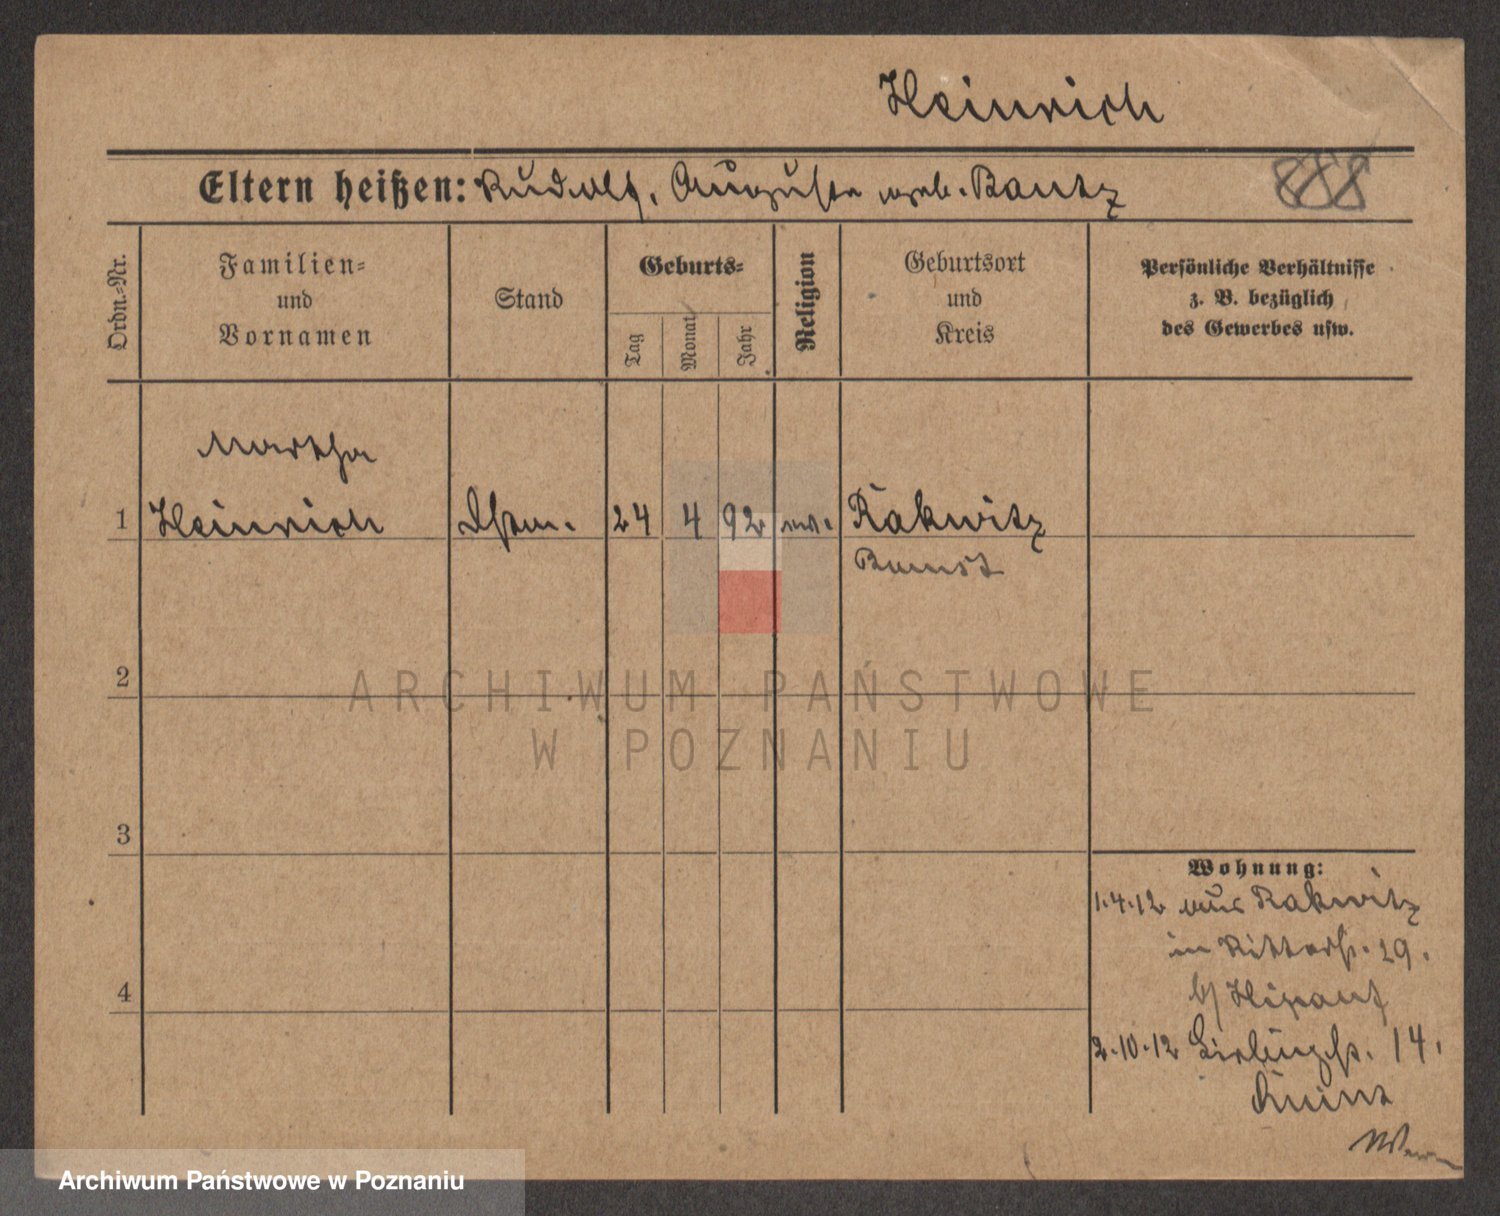 Heinrich
Eltern heißen: Rudolf, Auguste geb. Bautz
888
Ordn.-Nr.
Familien-
und
Vornamen
Stand
Geburts-
Tag
Monat
Jahr
Religion
Geburtsort
und
Kreis
Persönliche Verhältnisse
z. B. bezüglich
des Gewerbes usw.
Martha
1 Heinrich 24 4 92 ev. Rakwitz
Bomst
2
3
4
Wohnung:
1.4.12 aus Rakwitz
in Ritterstr. 29.
b/
2.10.12 14.
ARCHIWUM PAŃSTWOWE
W POZNANIU
Archiwum Państwowe w Poznaniu